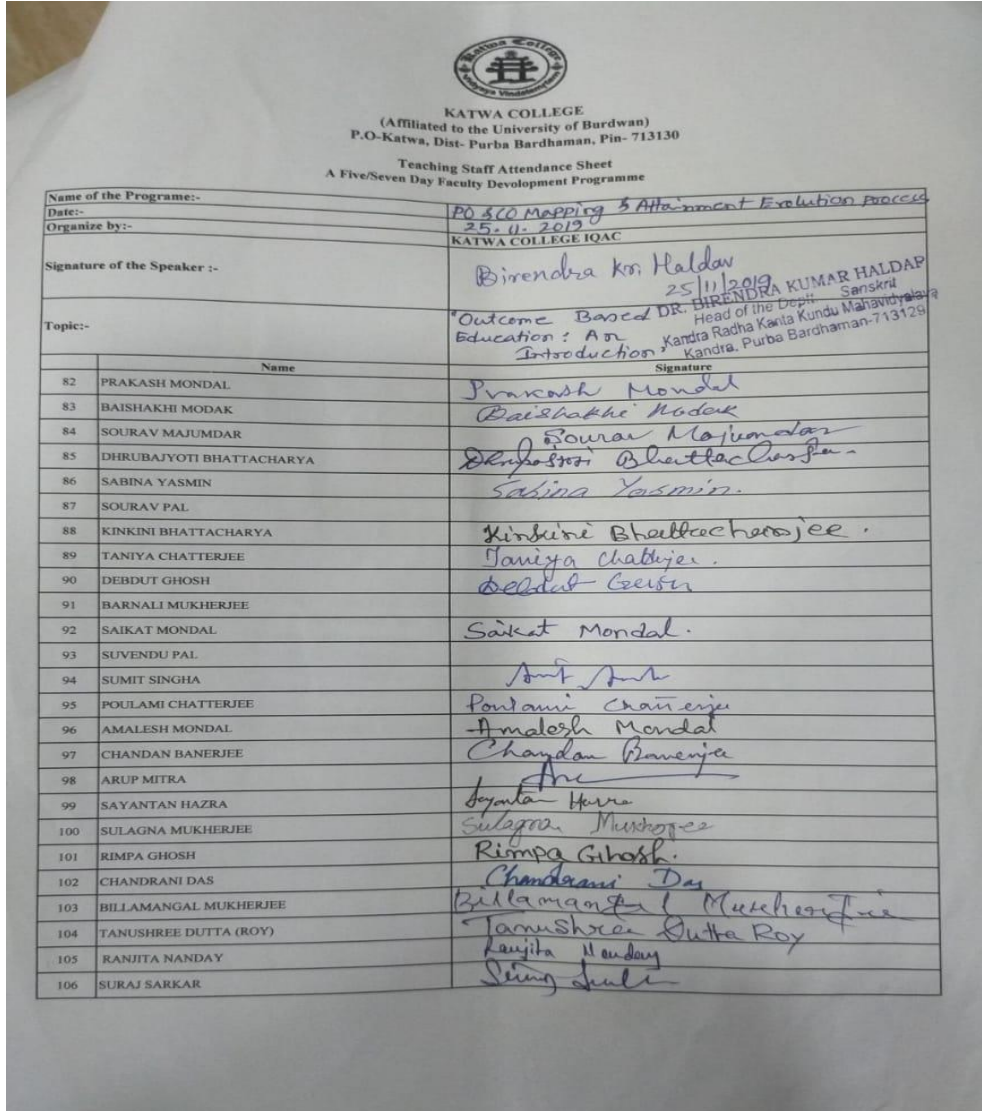 Katwa College
Vidyaya Vindatemritam
KATWA COLLEGE
(Affiliated to the University of Burdwan)
P.O-Katwa, Dist- Purba Bardhaman, Pin- 713130
Teaching Staff Attendance Sheet
A Five/Seven Day Faculty Devolopment Programme
Name of the Programe:- PO & CO Mapping & Attainment Evolution Process
Date:- 25.11.2019
Organize by:- KATWA COLLEGE IQAC
Signature of the Speaker :- Birendra Kr. Haldar
25/11/2019
DR. BIRENDRA KUMAR HALDAR
Head of the Deptt. Sanskrit
Kandra Radha Kanta Kundu Mahavidyalaya
Kandra, Purba Bardhaman-713129
Topic:- "Outcome Based
Education : An
Introduction"
Name Signature
82 PRAKASH MONDAL Prakash Mondal
83 BAISHAKHI MODAK Baishakhi Modak
84 SOURAV MAJUMDAR Sourav Majumdar
85 DHRUBAJYOTI BHATTACHARYA Bhattacharya
86 SABINA YASMIN Sabina Yasmin.
87 SOURAV PAL
88 KINKINI BHATTACHARYA Kinkini Bhattacharjee.
89 TANIYA CHATTERJEE Taniya Chatterjee.
90 DEBDUT GHOSH Debdut Ghosh
91 BARNALI MUKHERJEE
92 SAIKAT MONDAL Saikat Mondal.
93 SUVENDU PAL
94 SUMIT SINGHA
95 POULAMI CHATTERJEE Poulami Chatterjee
96 AMALESH MONDAL Amalesh Mondal
97 CHANDAN BANERJEE Chandan Banerjee
98 ARUP MITRA
99 SAYANTAN HAZRA Sayantan Hazra
100 SULAGNA MUKHERJEE Sulagna Mukherjee
101 RIMPA GHOSH Rimpa Ghosh.
102 CHANDRANI DAS Chandrani Das
103 BILLAMANGAL MUKHERJEE Billamangal Mukherjee
104 TANUSHREE DUTTA (ROY) Tanushree Dutta Roy
105 RANJITA NANDAY Ranjita Nanday
106 SURAJ SARKAR